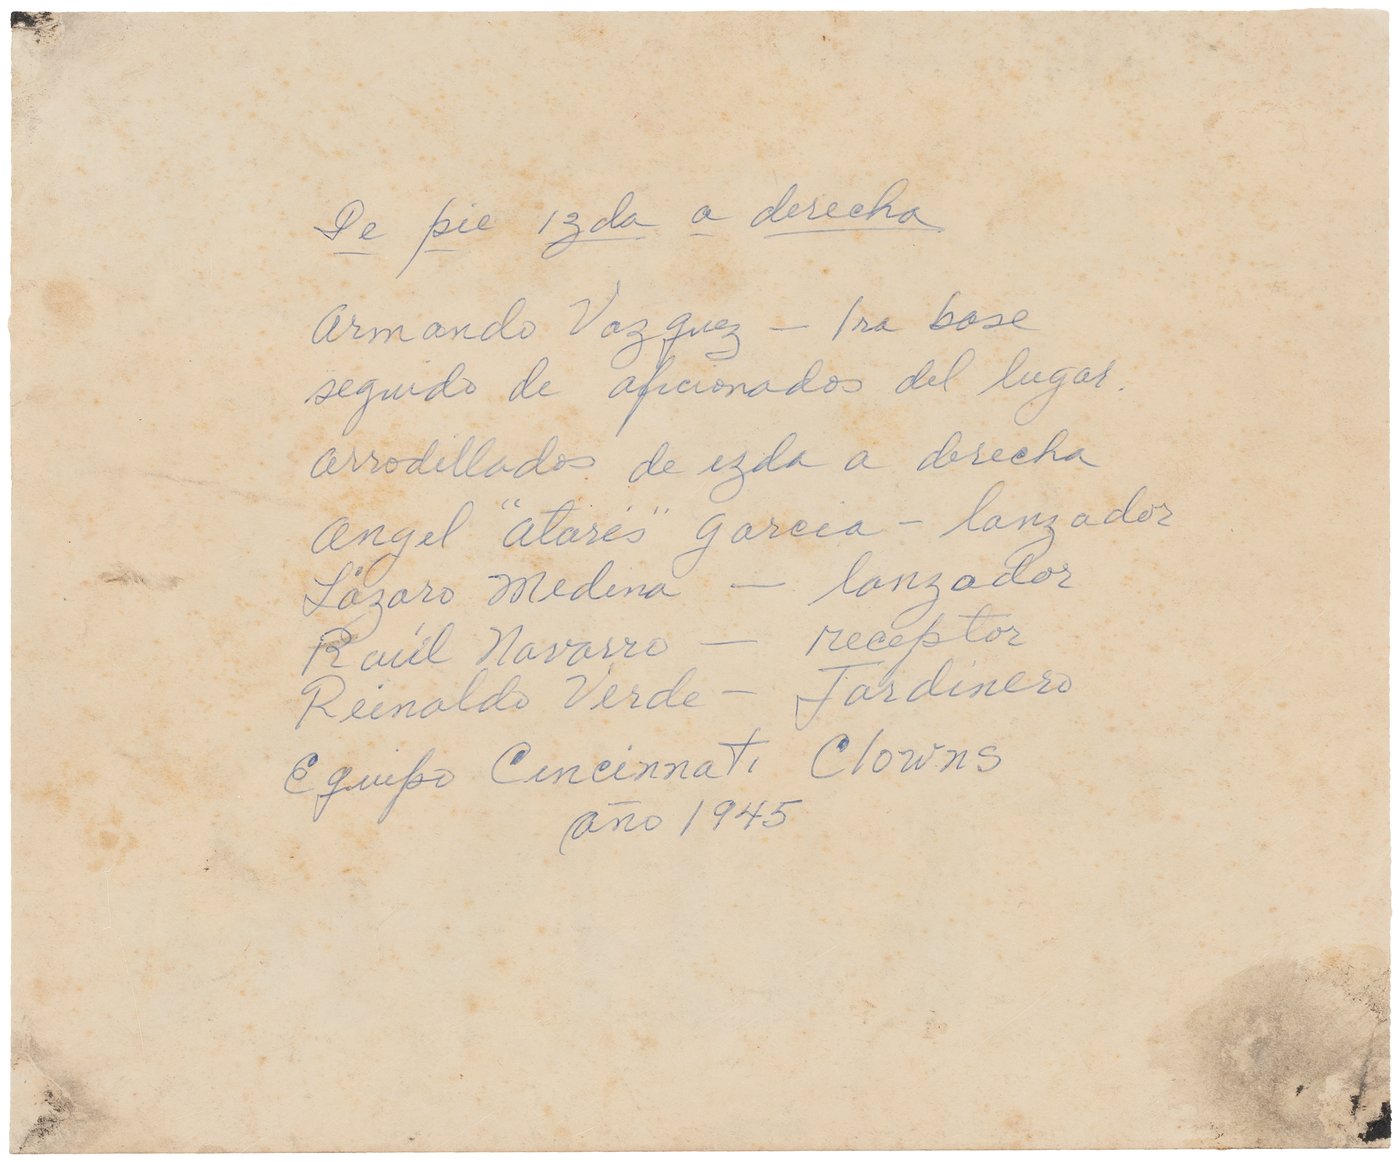 De pie izda a derecha
Armando Vazquez — 1ra base
seguido de aficionados del lugar.
Arrodillados de izda a derecha
Angel "Atarés" Garcia - lanzador
Lázaro Medina — lanzador
Raúl Navarro — receptor
Reinaldo Verde - Jardinero
Equipo Cincinnati Clowns
año 1945